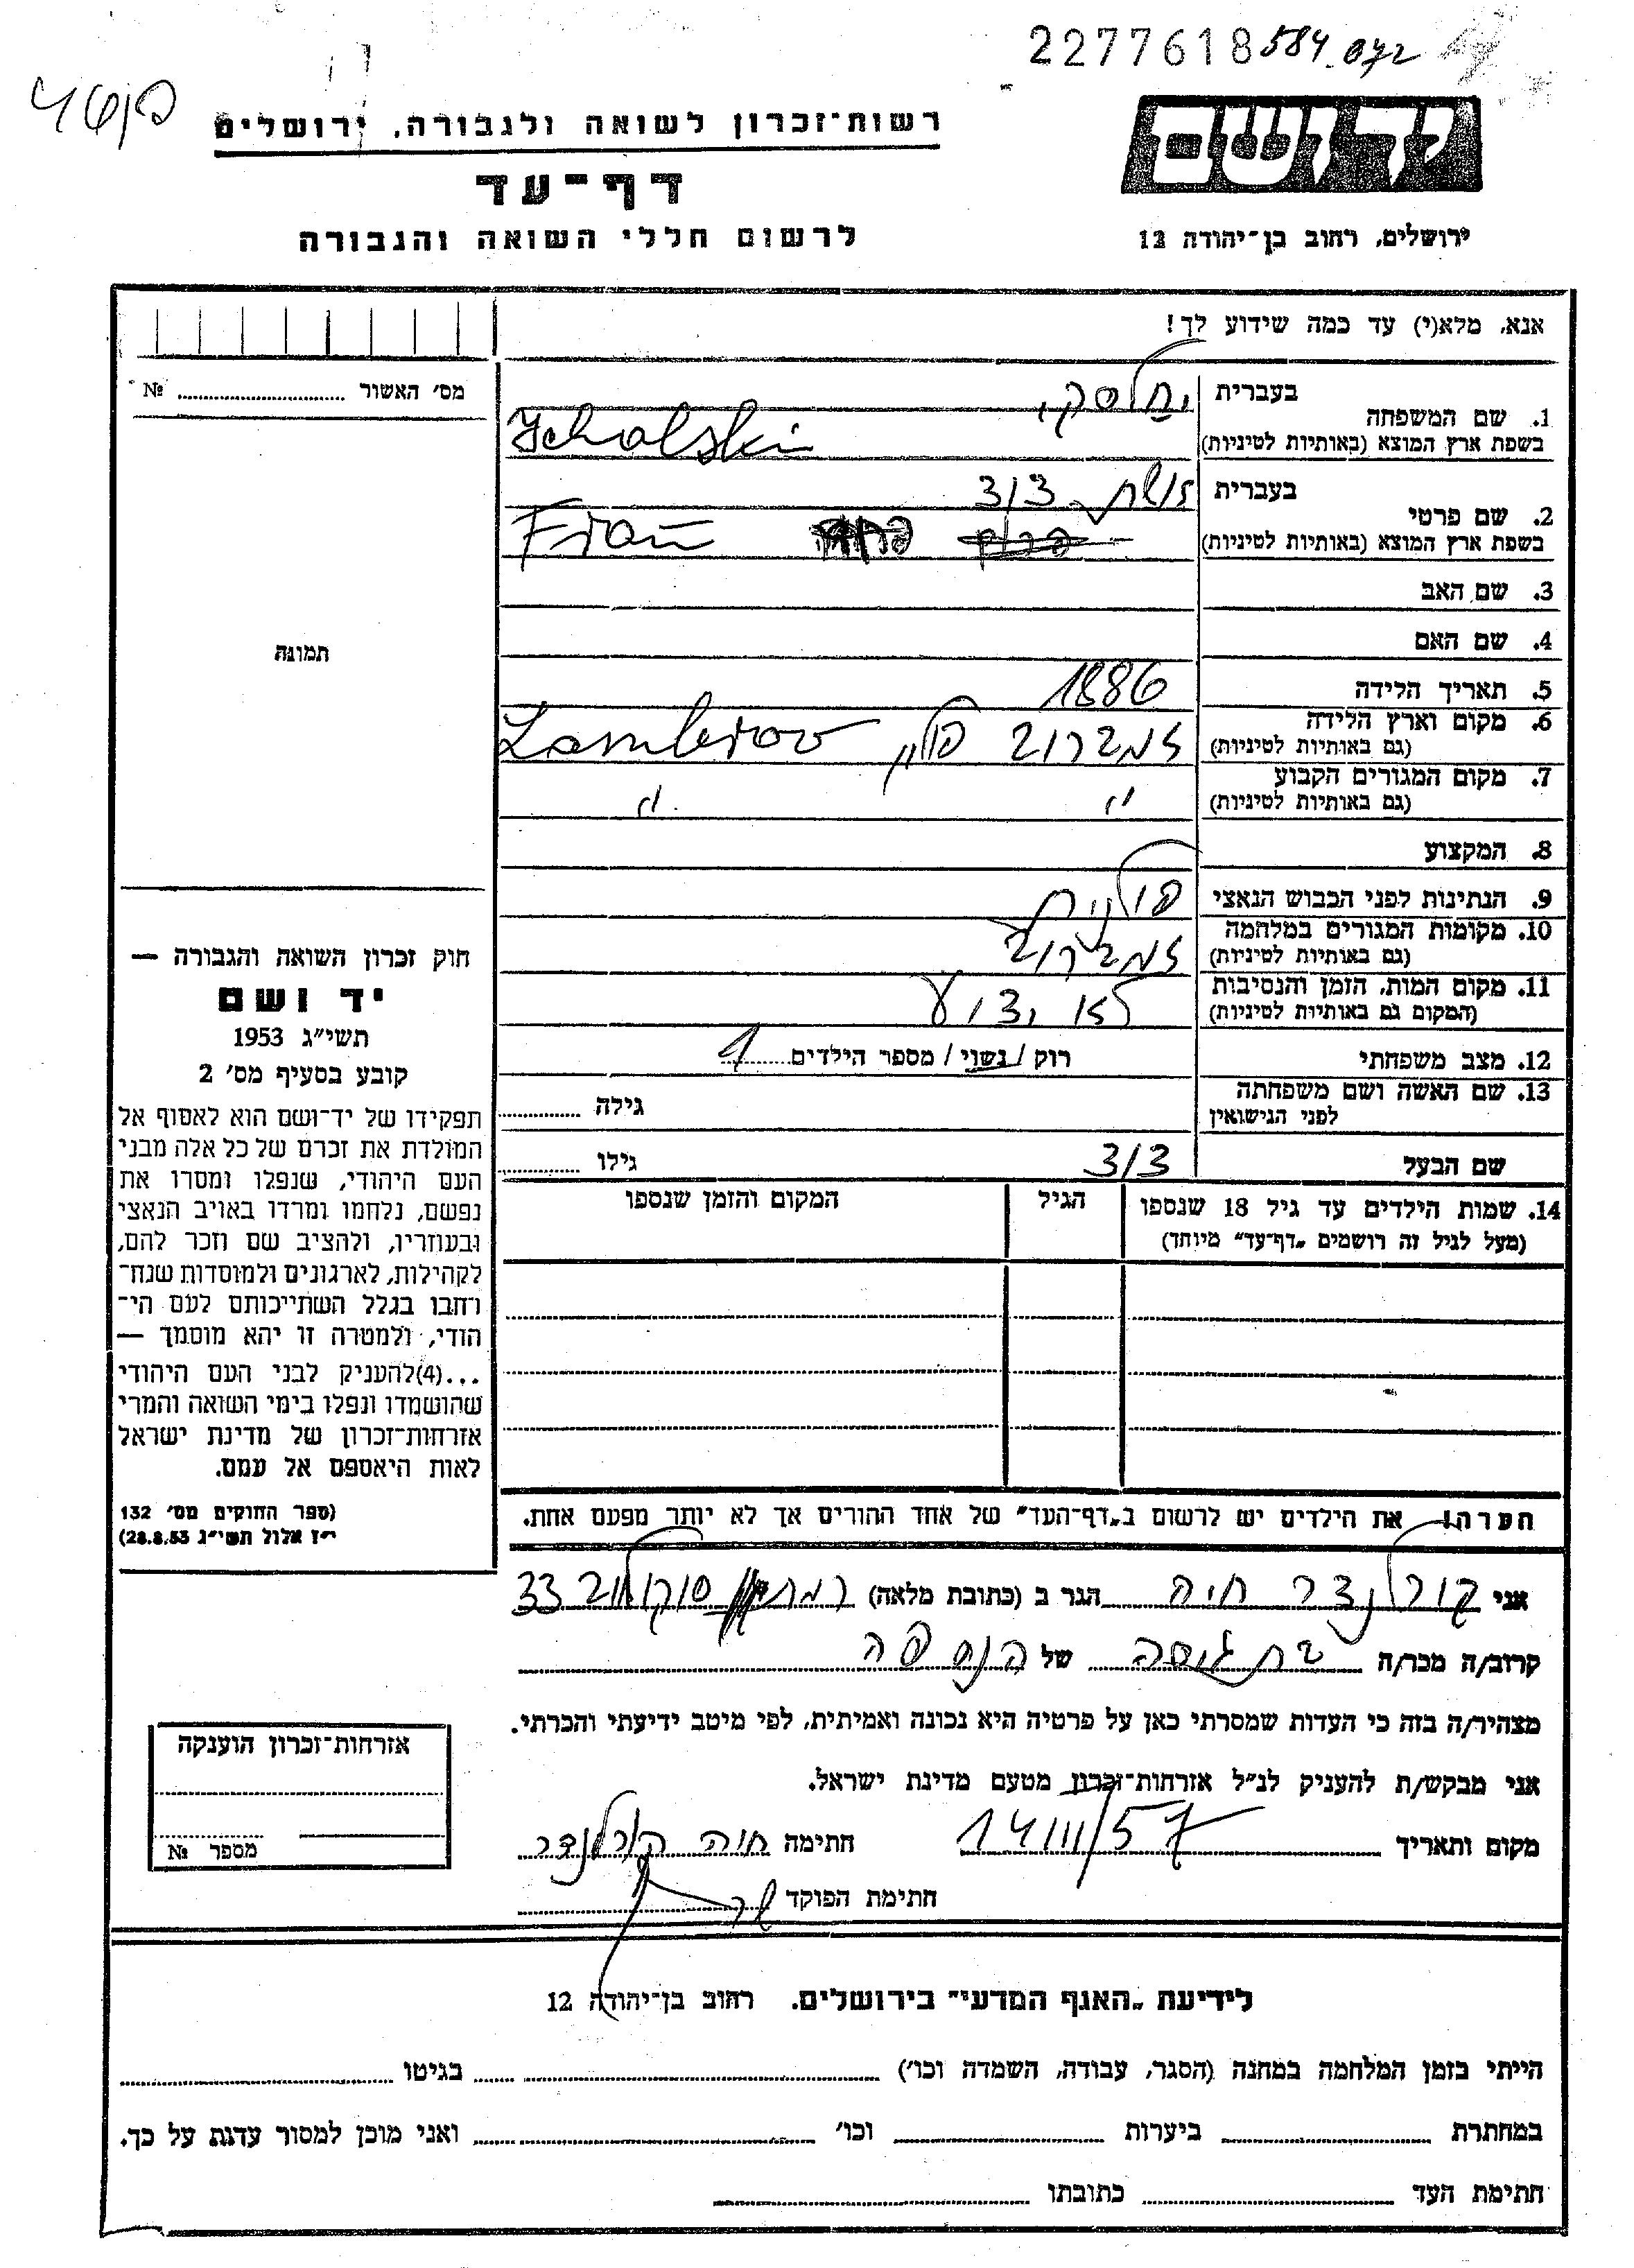 2277618 584.072
רשות־זכרון לשואה ולגבורה, ירושלים
יד ושם
דף־עד
לרשום חללי השואה והגבורה
ירושלים, רחוב בן־יהודה 12
אנא, מלא(י) עד כמה שידוע לך!
מס׳ האשור № 
1. שם המשפחה בעברית יחלסקי
בשפת ארץ המוצא (באותיות לטיניות) Jcholski
2. שם פרטי בעברית אשת דוד
בשפת ארץ המוצא (באותיות לטיניות)
3. שם האב
4. שם האם
תמונה
5. תאריך הלידה 1886
6. מקום וארץ הלידה
(גם באותיות לטיניות) זמברוב פולין Zambrov
7. מקום המגורים הקבוע
(גם באותיות לטיניות) " "
8. המקצוע
9. הנתינות לפני הכבוש הנאצי פולנית
10. מקומות המגורים במלחמה
(גם באותיות לטיניות) זמברוב
11. מקום המות, הזמן והנסיבות
(המקום גם באותיות לטיניות) לא ידוע
12. מצב משפחתי רוק / נשוי / מספר הילדים 1
13. שם האשה ושם משפחתה
לפני הנישואין גילה
שם הבעל דוד גילו
14. שמות הילדים עד גיל 18 שנספו הגיל המקום והזמן שנספו
(מעל לגיל זה רושמים „דף־עד״ מיוחד)
חוק זכרון השואה והגבורה —
יד ושם
תשי״ג 1953
קובע בסעיף מס׳ 2
תפקידו של יד־ושם הוא לאסוף אל
המולדת את זכרם של כל אלה מבני
העם היהודי, שנפלו ומסרו את
נפשם, נלחמו ומרדו באויב הנאצי
ובעוזריו, ולהציב שם וזכר להם,
לקהילות, לארגונים ולמוסדות שנח־
רחבו בגלל השתייכותם לעם הי־
הודי, ולמטרה זו יהא מוסמך —
...(4)להעניק לבני העם היהודי
שהושמדו ונפלו בימי השואה והמרי
אזרחות־זכרון של מדינת ישראל
לאות היאספם אל עמם.
(ספר החוקים מס׳ 132
י״ז אלול תשי״ג 28.8.53)
הערה! את הילדים יש לרשום ב„דף־העד״ של אחד ההורים אך לא יותר מפעם אחת.
אני קורלנדר חיה הגר ב (כתובת מלאה) סוקולוב 33
קרוב/ה מכר/ה בת גיסה של הנספה
מצהיר/ה בזה כי העדות שמסרתי כאן על פרטיה היא נכונה ואמיתית, לפי מיטב ידיעתי והכרתי.
אני מבקש/ת להעניק לנ״ל אזרחות־זכרון מטעם מדינת ישראל.
מקום ותאריך 14/III/57 חתימה חיה קורלנדר
חתימת הפוקד
אזרחות־זכרון הוענקה
מספר №
לידיעת „האגף המדעי״ בירושלים. רחוב בן־יהודה 12
הייתי בזמן המלחמה במחנה (הסגר, עבודה, השמדה וכו׳) בגיטו
במחתרת ביערות וכו׳ ואני מוכן למסור עדות על כך.
חתימת העד כתובתו